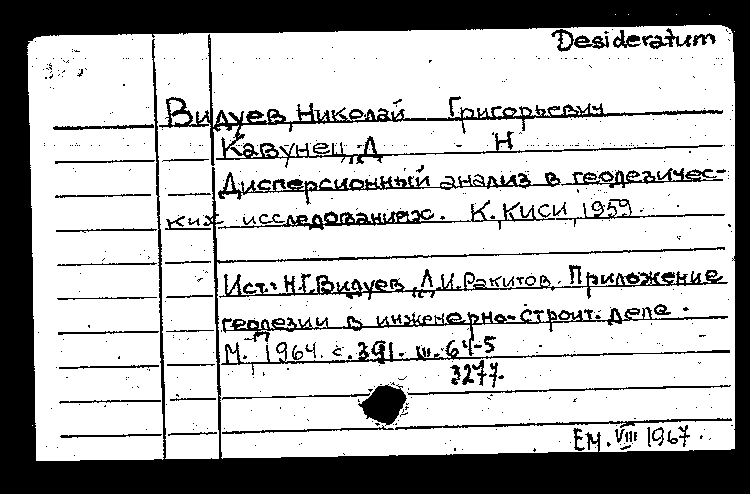 Desideratum
Видуев, Николай Григорьевич
Кавунец, Д Н
Дисперсионный анализ в геодезичес-
ких исследованиях. К., КИСИ, 1959.
Ист.: Н.Г. Видуев, Д.И. Ракитов. Приложение
геодезии в инженерно-строит. деле.
М. 1964. с. 391. ш. 64-5
3277.
ЕМ. VIII 1967.